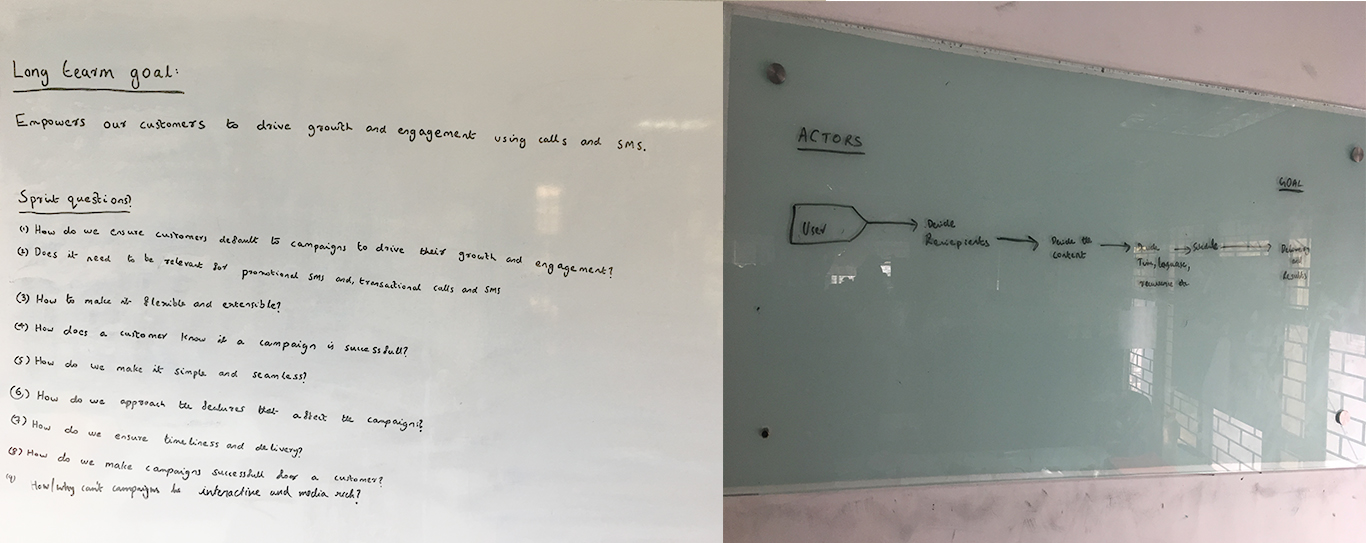 Long tearm goal:
Empowers our customers to drive growth and engagement using calls and SMS.
Sprint questions?
(1) How do we ensure customers default to campaigns to drive their growth and engagement?
(2) Does it need to be relevant for promotional SMS and, transactional calls and SMS
(3) How to make it flexible and extensible?
(4) How does a customer know if a campaign is successfull?
(5) How do we make it simple and seamless?
(6) How do we approach the features that affect the campaigns?
(7) How do we ensure timeliness and delivery?
(8) How do we make campaigns successfull for a customer?
(9) How/why can't campaigns be interactive and media rich?
ACTORS
GOAL
User
Decide
Reciepients
Decide the
content
Decide
Time, language,
Schedule
Delivery
and
Results